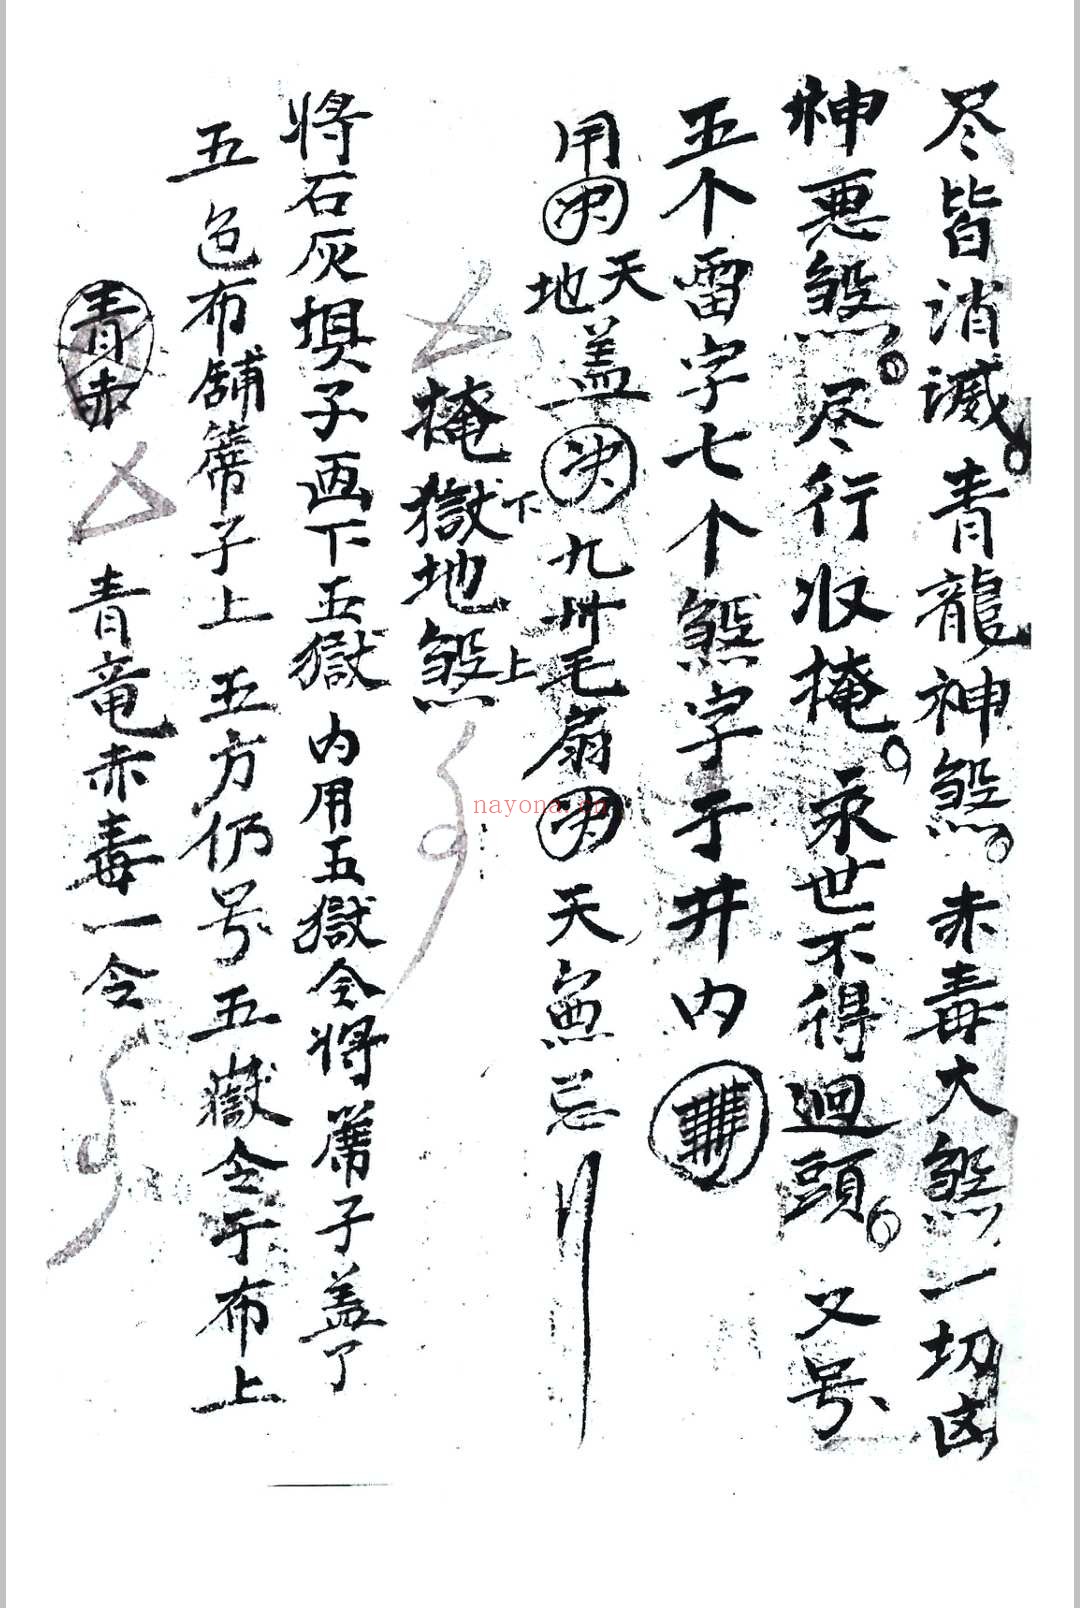 尽皆消滅青龍神煞赤毒大煞一切凶
神悪煞尽行收掩永世不得迴頭又号
五个雷字七个煞字于井内
用天地盖九卅毛扇天無忌
掩獄地煞下上
将石灰埧子画下五獄内用五獄令将蓆子盖了
五色布舖蓆子上五方仍号五獄令于布上
青赤青竜赤毒一令
nayona.cn